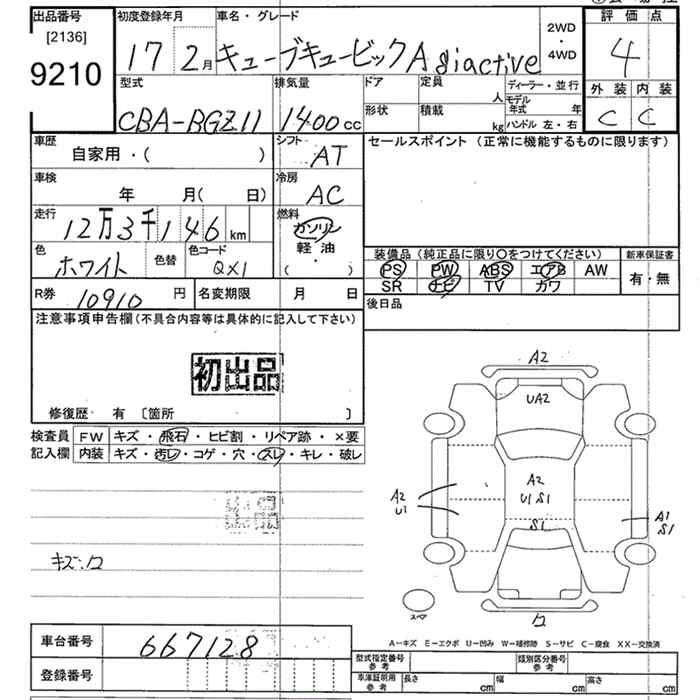 出品番号 [2136] 9210
初度登録年月 17 2月
車名・グレード キューブキュービック A
2WD・4WD
評価点 4
外装 C 内装 C
型式 CBA-BGZ11
排気量 1400cc
ドア 形状
定員 人
積載 kg
ディーラー・並行
モデル年式 年
ハンドル 左・右
車歴 自家用・( )
シフト AT
セールスポイント (正常に機能するものに限ります)
車検 年 月( 日)
冷房 AC
走行 12万3千146km
燃料 ガソリン 軽・油 ( )
色 ホワイト 色替
色コード QX1
装備品 (純正品に限り〇をつけてください)
新車保証書 有・無
PS PW ABS エアB AW
SR ナビ TV カワ
R券 10910円
名変期限 月 日
後日品
注意事項申告欄 (不具合内容等は具体的に記入して下さい)
初出品
修復歴 有 〔箇所 〕
検査員記入欄
FW キズ・飛石・ヒビ割・リペア跡・×要
内装 キズ・汚レ・コゲ・穴・スレ・キレ・破レ
キズ:ワ
A2
UA2
A2
U1 S1
S1
A2
U1
A1
S1
ワ
スペア
A-キズ E-エクボ U-凹み W-補修跡 S-サビ C-腐食 XX-交換済
車台番号 667128
登録番号
型式指定番号 参考
類別区分番号 参考
車庫証明用 参考 長さ cm 幅 cm 高さ cm